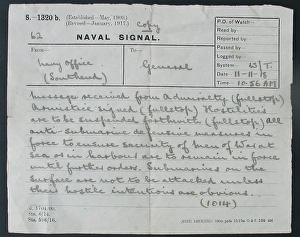 S. 1320 b. (Established—May, 1900.)
(Revised—January, 1917.)
Copy
62 NAVAL SIGNAL.
P.O. of Watch—
Read by
Reported by
Passed by
Logged by
System W/T.
Date 11-11-18
Time 10.56 AM
From— To—
Navy Office General
(Southend)
message received from Admiralty (fullstop)
Armistice signed (fullstop) Hostilities
are to be suspended forthwith (fullstop) All
anti-submarine defensive measures in
force to ensure security of men of War at
sea or in harbour are to remain in force
until further orders. Submarines on the
surface are not to be attacked unless
their hostile intentions are obvious.
(1014)
Sta. 6/14.
Sta. 5/8/16.